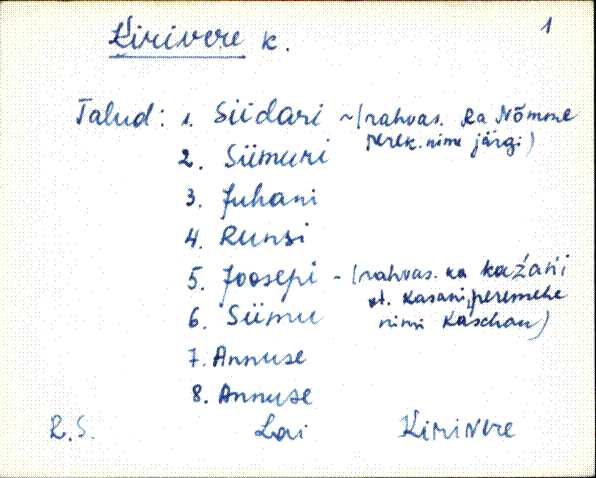 Kirivere k.
1
Talud: 1. Siidari ~ (rahvas. ka Nõmme
perek. nime järgi)
2. Siimuri
3. Juhani
4. Runsi
5. Joosepi - (rahvas. ka kaźańi
st. Kasani, peremehe
6. Siimu nimi Kaschan)
7. Annuse
8. Annuse
R.S. Lai Kirivere